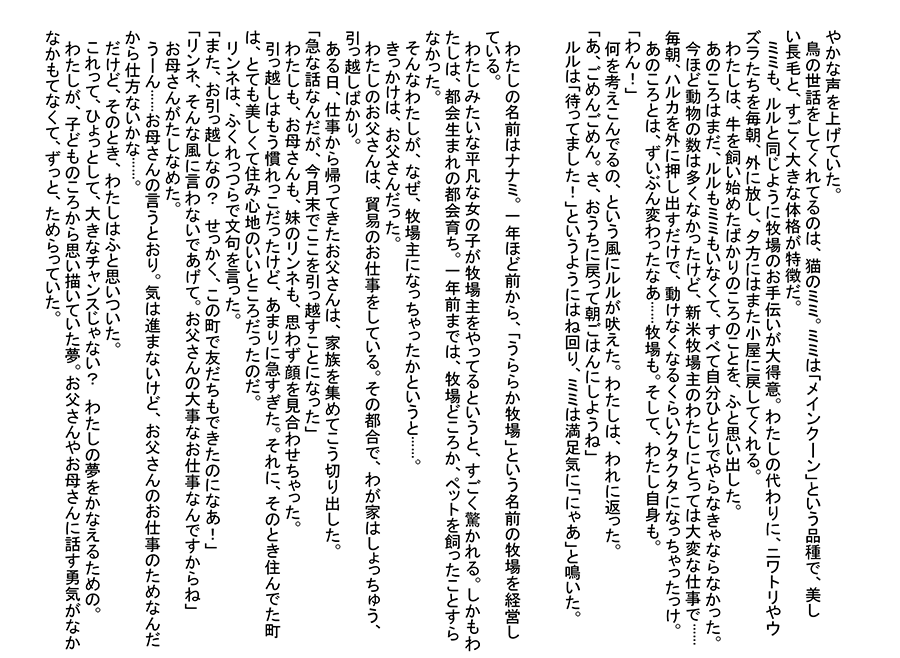 やかな声を上げていた。
　鳥の世話をしてくれてるのは、猫のミミ。ミミは「メインクーン」という品種で、美し
い長毛と、すごく大きな体格が特徴だ。
　ミミも、ルルと同じように牧場のお手伝いが大得意。わたしの代わりに、ニワトリやウ
ズラたちを毎朝、外に放し、夕方にはまた小屋に戻してくれる。
　わたしは、牛を飼い始めたばかりのころのことを、ふと思い出した。
　あのころはまだ、ルルもミミもいなくて、すべて自分ひとりでやらなきゃならなかった。
　今ほど動物の数は多くなかったけど、新米牧場主のわたしにとっては大変な仕事で……
毎朝、ハルカを外に押し出すだけで、動けなくなるくらいクタクタになっちゃったっけ。
　あのころとは、ずいぶん変わったなあ……牧場も。そして、わたし自身も。
「わん！」
　何を考えこんでるの、という風にルルが吠えた。わたしは、われに返った。
「あ、ごめんごめん。さ、おうちに戻って朝ごはんにしようね」
　ルルは「待ってました！」というようにはね回り、ミミは満足気に「にゃあ」と鳴いた。
　わたしの名前はナナミ。一年ほど前から、「うららか牧場」という名前の牧場を経営し
ている。
　わたしみたいな平凡な女の子が牧場主をやってるというと、すごく驚かれる。しかもわ
たしは、都会生まれの都会育ち。一年前までは、牧場どころか、ペットを飼ったことすら
なかった。
　そんなわたしが、なぜ、牧場主になっちゃったかというと……。
　きっかけは、お父さんだった。
　わたしのお父さんは、貿易のお仕事をしている。その都合で、わが家はしょっちゅう、
引っ越しばかり。
　ある日、仕事から帰ってきたお父さんは、家族を集めてこう切り出した。
「急な話なんだが、今月末でここを引っ越すことになった」
　わたしも、お母さんも、妹のリンネも、思わず顔を見合わせちゃった。
　引っ越しはもう慣れっこだったけど、あまりに急すぎた。それに、そのとき住んでた町
は、とても美しくて住み心地のいいところだったのだ。
　リンネは、ふくれっつらで文句を言った。
「また、お引っ越しなの？　せっかく、この町で友だちもできたのになあ！」
「リンネ、そんな風に言わないであげて。お父さんの大事なお仕事なんですからね」
　お母さんがたしなめた。
　うーん……お母さんの言うとおり。気は進まないけど、お父さんのお仕事のためなんだ
から仕方ないかな……。
　だけど、そのとき、わたしはふと思いついた。
　これって、ひょっとして、大きなチャンスじゃない？　わたしの夢をかなえるための。
　わたしが、子どものころから思い描いていた夢。お父さんやお母さんに話す勇気がなか
なかもてなくて、ずっと、ためらっていた。